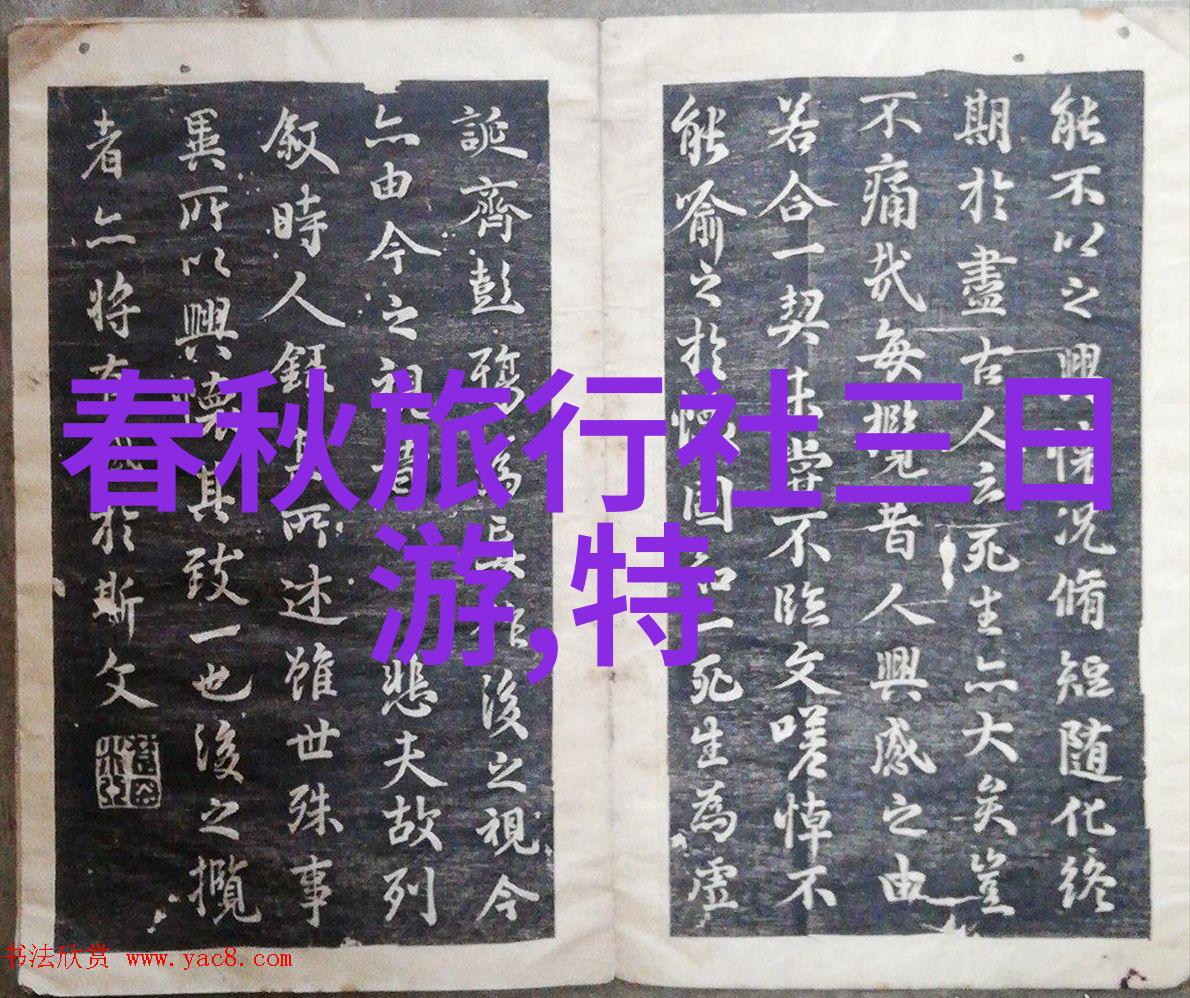 能不以之興懷況脩短随化終
期於盡古人云死生亦大矣豈
不痛哉每攬昔人興感之由
若合一契未嘗不臨文嗟悼不
能喻之於懷固知一死生為虛
誕齊彭殤為妄作後之視今
亦由今之視昔悲夫故列
敘時人錄其所述雖世殊事
異所以興懷其致一也後之攬
者亦将有感於斯文
春秋旅行社三日
游,特
书法欣赏 www.yac8.com